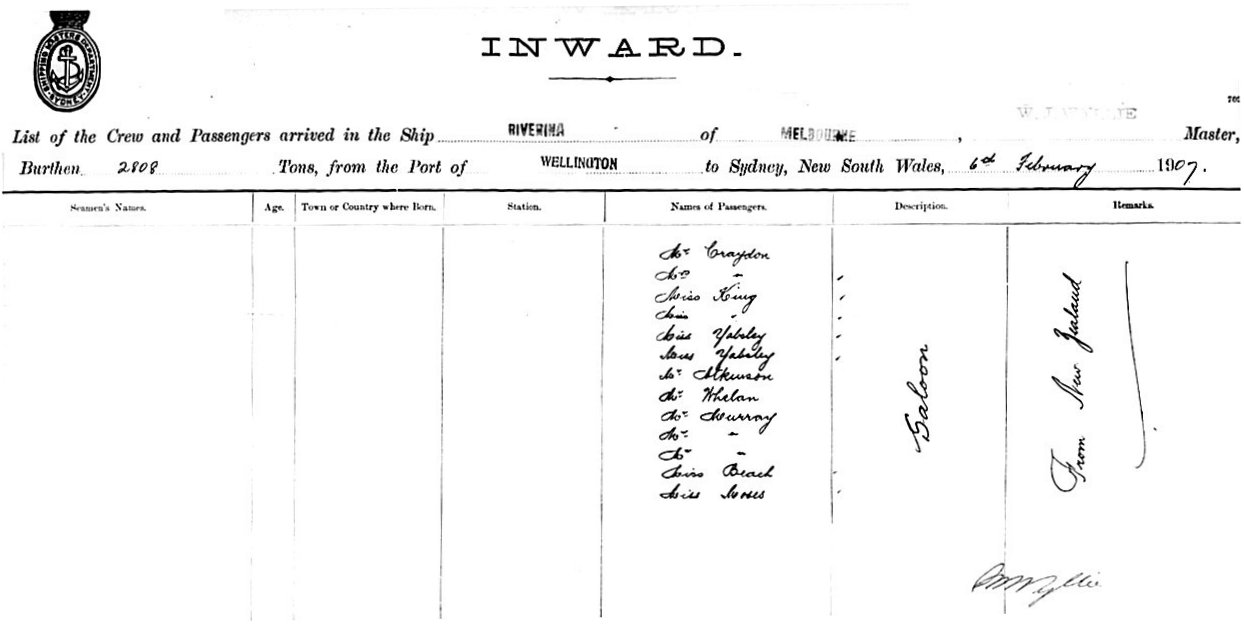 SHIPPING MASTERS DEPARTMENT SYDNEY
INWARD.
W. J. WYLLIE
List of the Crew and Passengers arrived in the Ship RIVERINA of MELBOURNE, Master,
Burthen 2808 Tons, from the Port of WELLINGTON to Sydney, New South Wales, 6th February 1907.
Seamen's Names. Age. Town or Country where Born. Station. Names of Passengers. Description. Remarks.
Mr Craydon
Mrs "
Miss King
Miss "
Miss Yabsley
Miss Yabsley
Mr Atkinson
Mr Whelan
Mr Murray
Mr "
Mr "
Miss Beach
Miss Moses
Saloon
From New Zealand
Wyllie